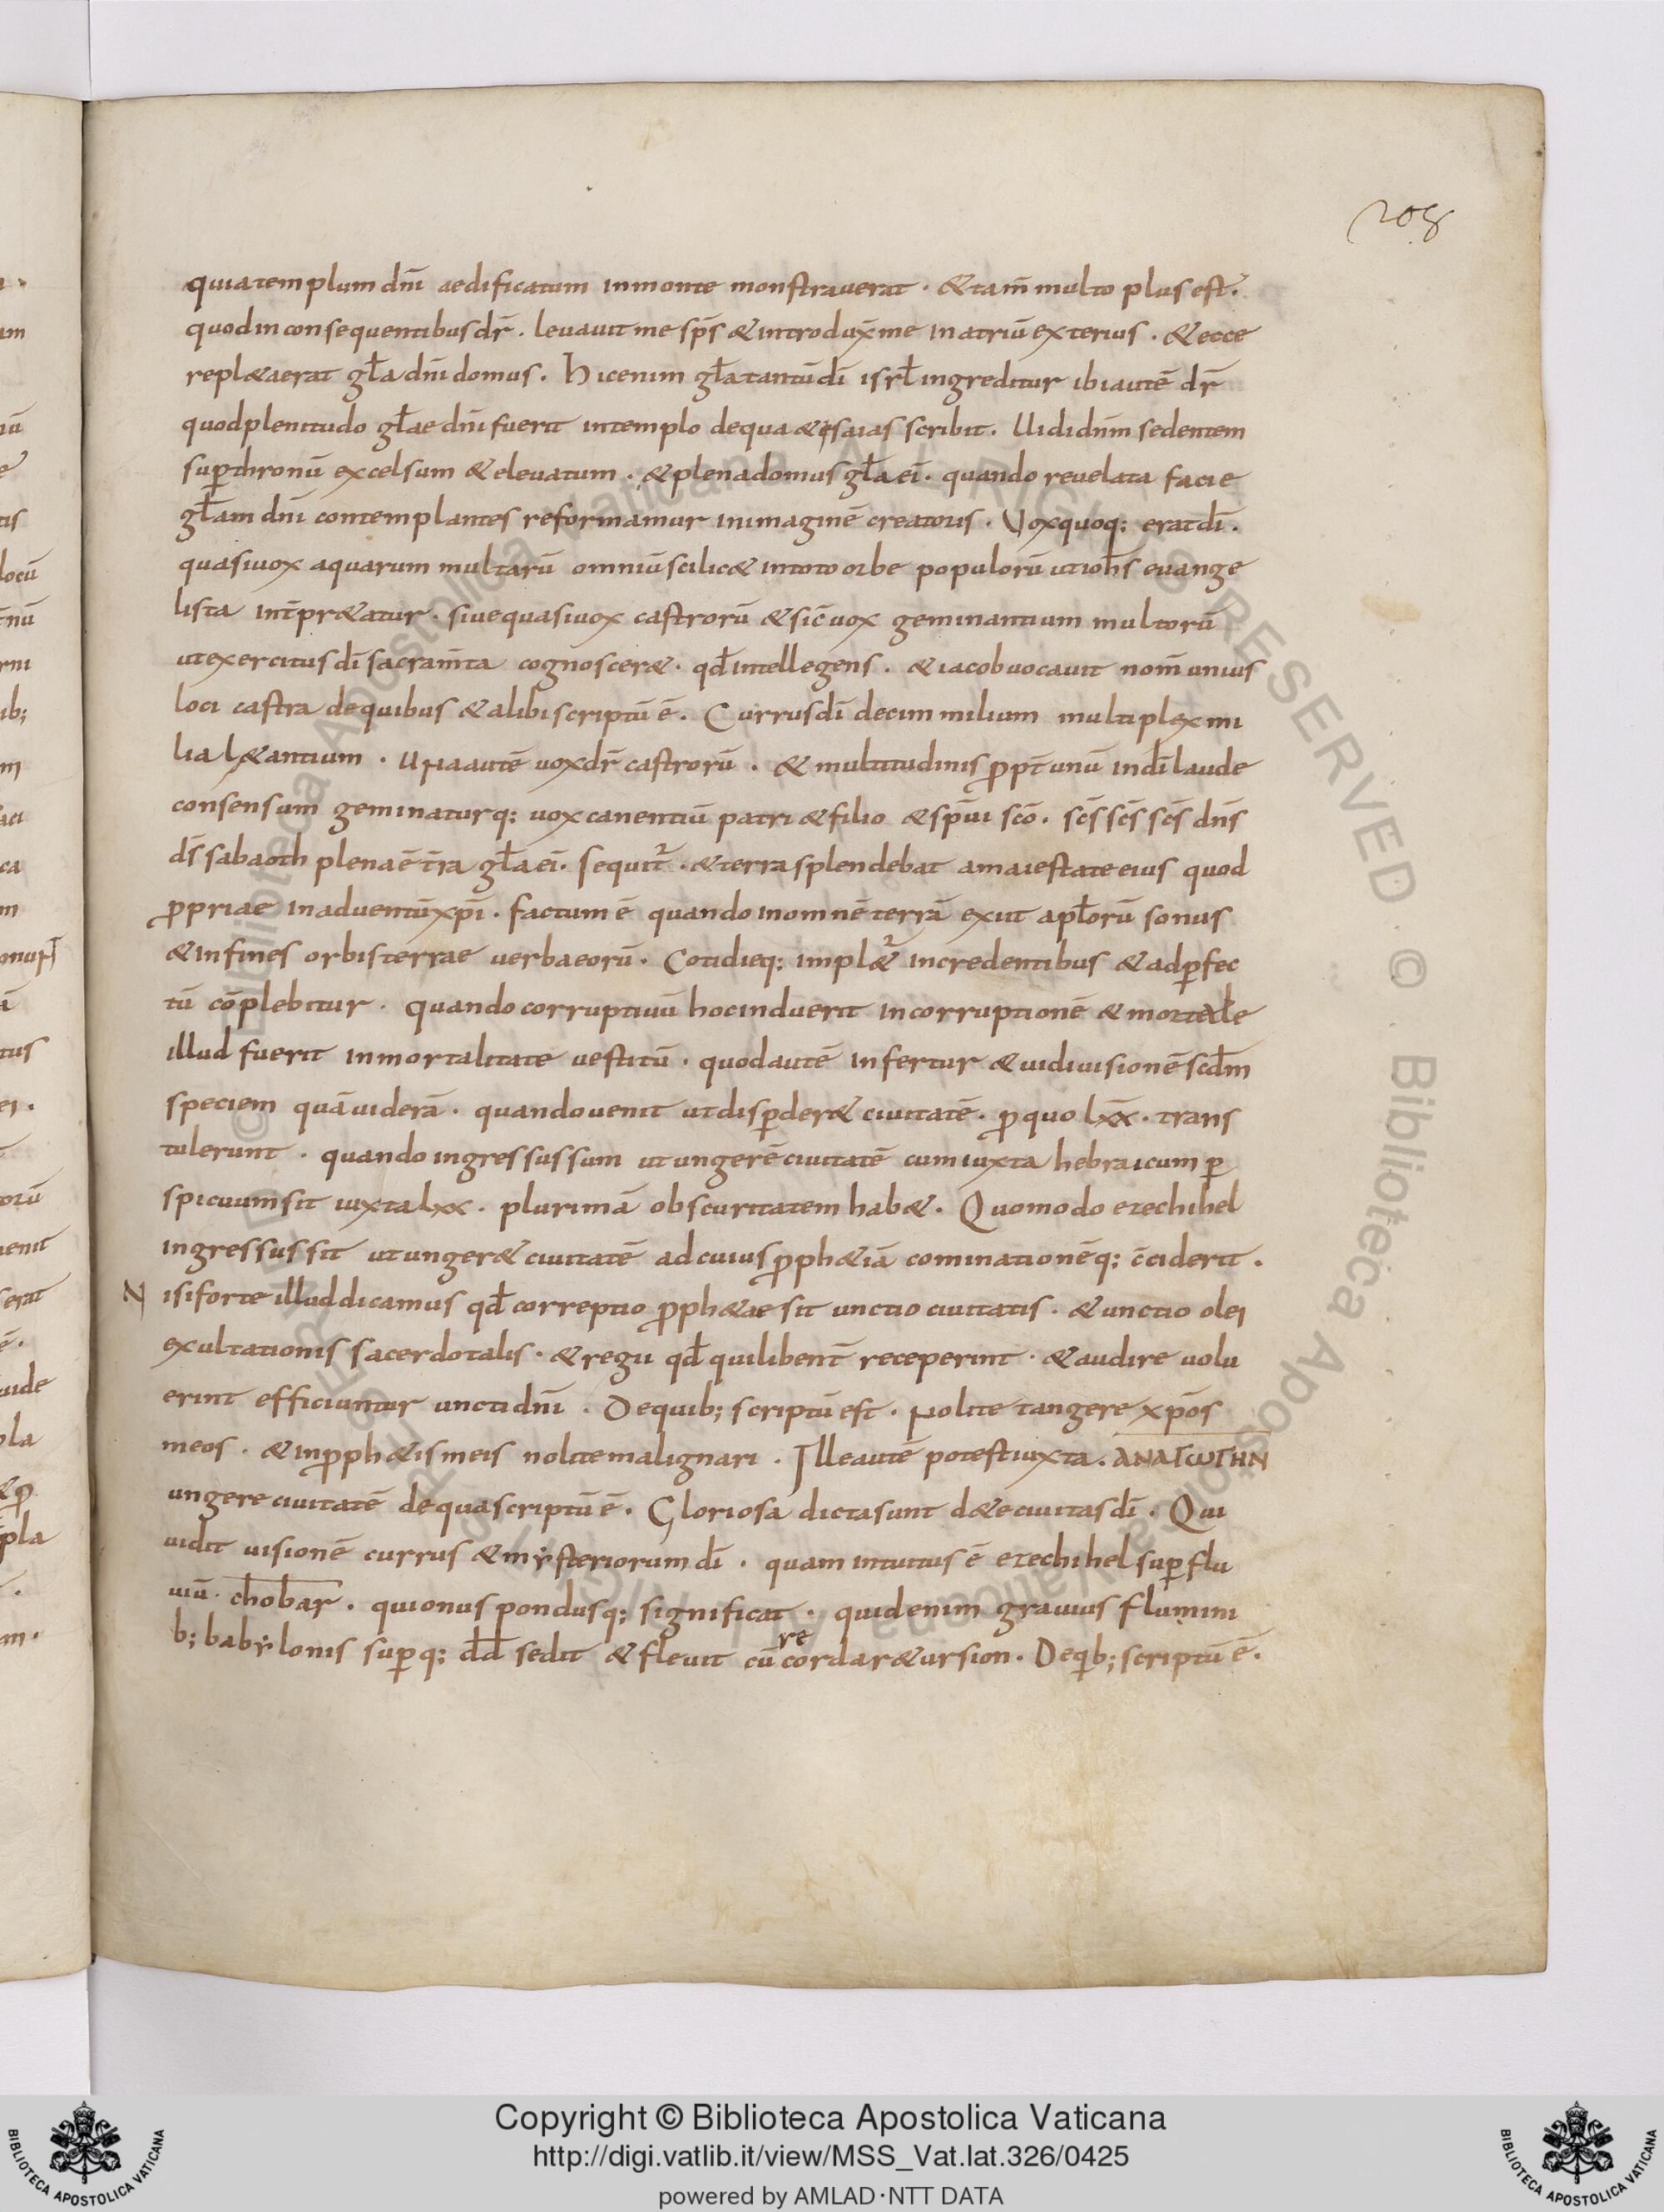 208
quia templum dn̄i aedificatum in monte monstrauerat · & tam̄ multo plus est ·
quod in consequentibus dr̄ · leuauit me sp̄s & introdux̄ me in atriū exterius · & ecce
repl&a erat gła dn̄i domus · hic enim gła tantū dī isrł ingreditur ibi autē dr̄
quod plenitudo głae dn̄i fuerit in templo de qua & esaias scribit · Uidi dn̄m sedentem
sup̱ thronū excelsum & eleuatum · & plena domus gła eī · quando reuelata facie
głam dn̄i contemplantes reformamur in imaginē creatoris · Vox quoq: erat dī ·
quasi uox aquarum multarū omniū scilic& in toto orbe populorū ut ioh̄s euange
lista int̄pr&atur · siue quasi uox castrorū & sic̄ uox geminantium multorū
ut exercitus dī sacram̄ta cognoscer& · qd̄ intellegens · & iacob uocauit nom̄ unius
loci castra de quibus & alibi scriptū ē · Currus dī decim milium multiplex mi
lia l&antium · Una autē uox dr̄ castrorū · & multitudinis ꝓpt̄ unū in dī laude
consensum geminaturq: uox canentiū patri & filio & sp̄ui sc̄o · sc̄s sc̄s sc̄s dn̄s
d̄s sabaoth plena ē t̄ra gła eī · sequit᷑ · & terra splendebat a maiestate eius quod
ꝓpriae in aduentū xp̄i · factum ē quando in omnē terrā exiit apłorū sonus
& in fines orbis terrae uerba eorū · Cotidieq: impl&᷑ in credentibus & ad p̱fec
tū cōplebitur · quando corruptiuū hoc induerit incorruptionē & mortale
illud fuerit inmortalitate uestitū · quod autē infertur & uidi uisionē scd̄m
speciem quā uiderā · quando uenit ut disp̱der& ciuitatē · ꝓ quo lx̄x̄ · trans
tulerunt · quando ingressus sum ut ungerē ciuitatē cum iuxta hebraicum p̱
spicuum sit iuxta lxx · plurimā obscuritatem hab& · Quomodo ezechihel
ingressus sit ut unger& ciuitatē ad cuius ꝓph&iā cominationēq: c̄ciderit ·
N isi forte illud dicamus qd̄ correptio ꝓph&ae sit unctio ciuitatis · & unctio olei
exultationis sacerdotalis · & regii qd̄ qui libent̄ receperint · & audire uolu
erint efficiuntur uncti dn̄i · De quib; scriptū est · Nolite tangere xp̄os
meos · & in ꝓph&is meis nolite malignari · Ille autē potest iuxta · ΑΝΑΓωΓΗΝ
ungere ciuitatē de qua scriptū ē · Gloriosa dicta sunt d&e ciuitas dī · Qui
uidit uisionē currus & mẏsteriorum dī · quam intuitus ē ezechihel sup̱ flu
uiū · chobar · qui onus pondusq; significat · quid enim grauius flumini
b; babẏlonis sup̱q: dd̄ sedit & fleuit cū recordar&ur sion · De qib; scriptū ē ·
Copyright © Biblioteca Apostolica Vaticana
http://digi.vatlib.it/view/MSS_Vat.lat.326/0425
powered by AMLAD·NTT DATA